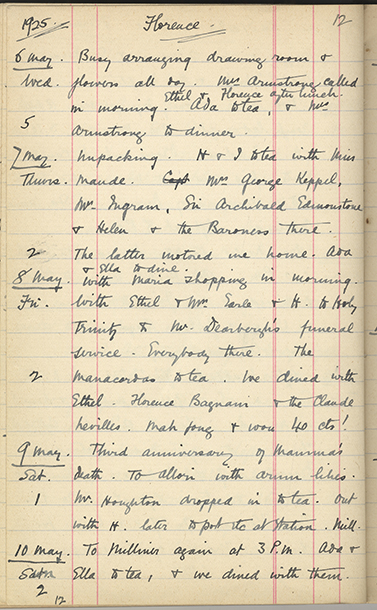 1925 Florence 12
6 May. Busy arranging drawing room &
Wed. flowers all day. Mrs Armstrong called
Ethel & Florence after lunch.
in morning. Ada to tea, & Mrs
5 Armstrong to dinner.
7 May. Unpacking. H & I to tea with Miss
Thurs. Maude. Capt Mrs George Keppel,
Mr. Ingram, Sir Archibald Edmonstone
& Helen & the Baroness there.
2 The latter motored me home. Ada
& Ella to dine.
8 May. With Maria shopping in morning.
Fri. With Ethel & Mrs Earle & H. to Holy
Trinity to Mr. Dearbergh's funeral
service. Everybody there. The
2 Manacordas to tea. We dined with
Ethel. Florence Bagnani & the Claude
Nevilles. Mah Jong & won 40 cts!
9 May. Third anniversary of Mamma's
Sat. death. To Allori with arum lilies.
1 Mr. Houghton dropped in to tea. Out
with H. later to post etc at Station. Mill.
10 May. To Milliner again at 3 P.M. Ada &
Ella to tea, & we dined with them.
2
12